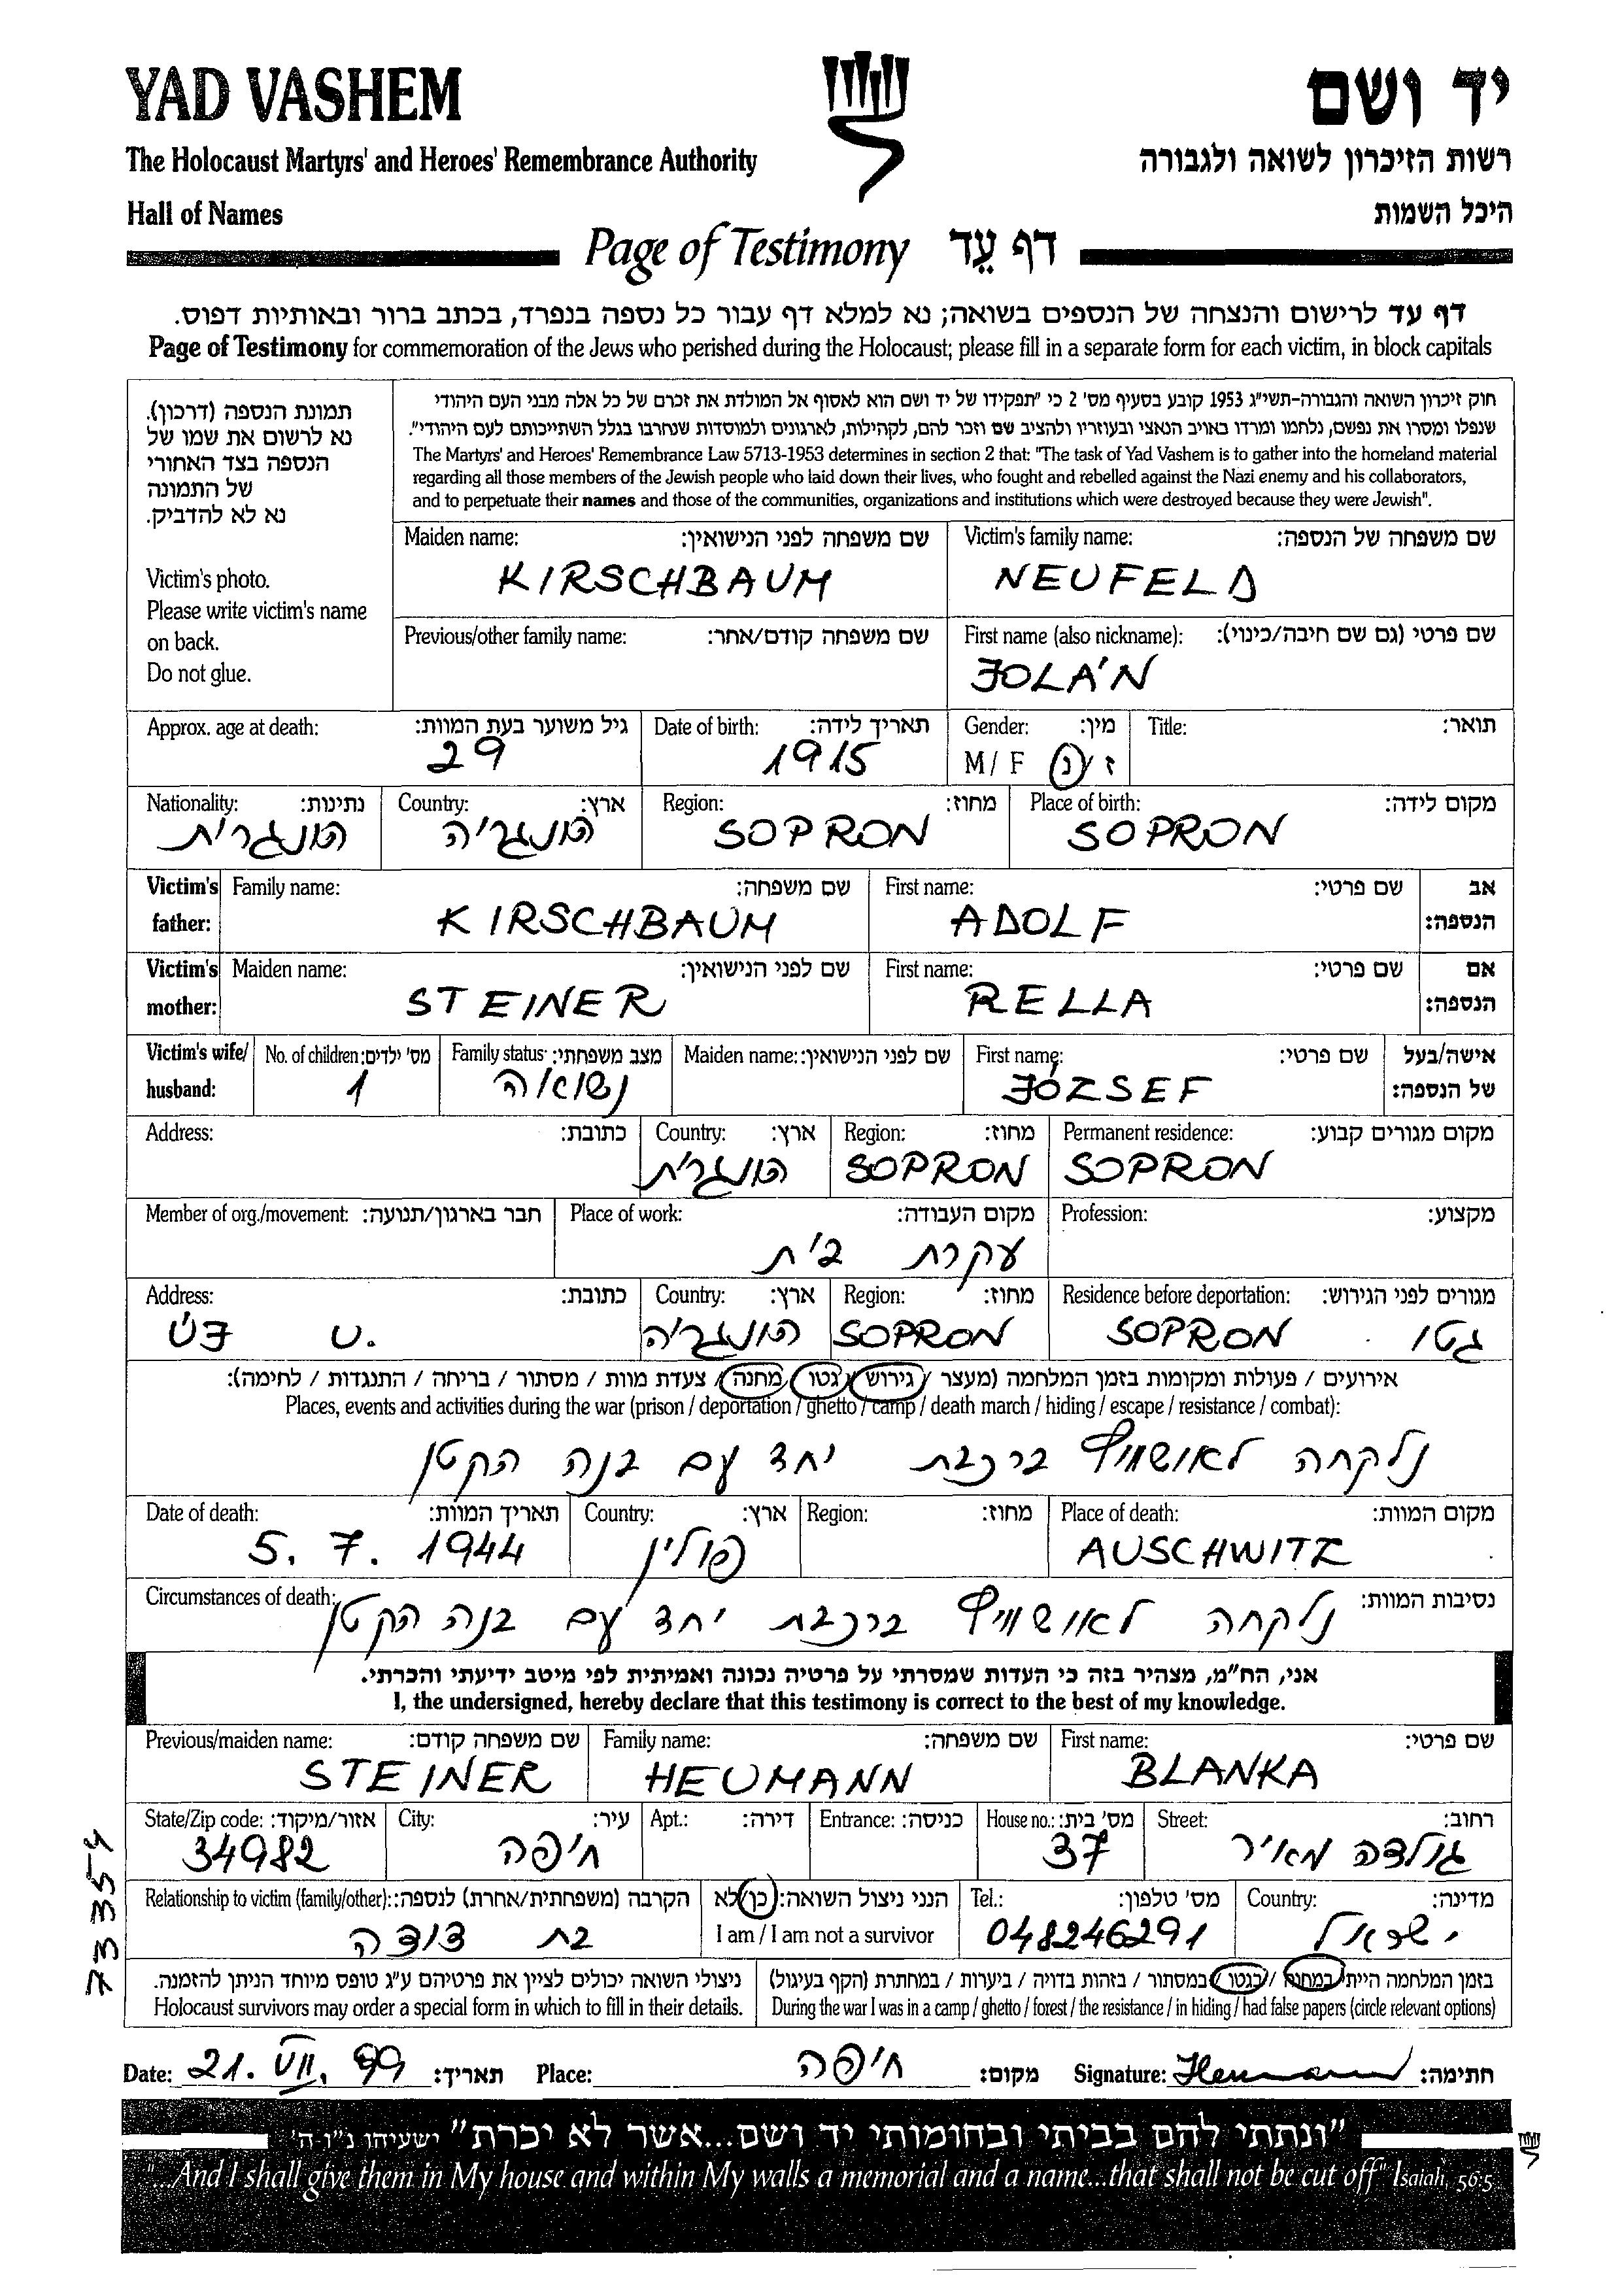 YAD VASHEM
יד ושם
The Holocaust Martyrs' and Heroes' Remembrance Authority
רשות הזיכרון לשואה ולגבורה
Hall of Names
היכל השמות
Page of Testimony דף עֵד
דף עד לרישום והנצחה של הנספים בשואה; נא למלא דף עבור כל נספה בנפרד, בכתב ברור ובאותיות דפוס.
Page of Testimony for commemoration of the Jews who perished during the Holocaust; please fill in a separate form for each victim, in block capitals
תמונת הנספה (דרכון).
נא לרשום את שמו של
הנספה בצד האחורי
של התמונה
נא לא להדביק.
Victim's photo.
Please write victim's name
on back.
Do not glue.
חוק זיכרון השואה והגבורה-תשי"ג 1953 קובע בסעיף מס' 2 כי "תפקידו של יד ושם הוא לאסוף אל המולדת את זכרם של כל אלה מבני העם היהודי
שנפלו ומסרו את נפשם, נלחמו ומרדו באויב הנאצי ובעוזריו ולהציב שם וזכר להם, לקהילות, לארגונים ולמוסדות שנחרבו בגלל השתייכותם לעם היהודי".
The Martyrs' and Heroes' Remembrance Law 5713-1953 determines in section 2 that: "The task of Yad Vashem is to gather into the homeland material
regarding all those members of the Jewish people who laid down their lives, who fought and rebelled against the Nazi enemy and his collaborators,
and to perpetuate their names and those of the communities, organizations and institutions which were destroyed because they were Jewish".
Maiden name: שם משפחה לפני הנישואין: Victim's family name: שם משפחה של הנספה:
KIRSCHBAUM NEUFELD
Previous/other family name: שם משפחה קודם/אחר: First name (also nickname): שם פרטי (גם שם חיבה/כינוי):
JOLÁN
Approx. age at death: גיל משוער בעת המוות: Date of birth: תאריך לידה: Gender: מין: Title: תואר:
29 1915 M / F ז / נ
Nationality: נתינות: Country: ארץ: Region: מחוז: Place of birth: מקום לידה:
הונגרית הונגריה SOPRON SOPRON
Victim's Family name: שם משפחה: First name: שם פרטי: אב
father: KIRSCHBAUM ADOLF הנספה:
Victim's Maiden name: שם לפני הנישואין: First name: שם פרטי: אם
mother: STEINER RELLA הנספה:
Victim's wife/ No. of children: מס' ילדים: Family status: מצב משפחתי: Maiden name: שם לפני הנישואין: First name: שם פרטי: אישה/בעל
husband: 1 נשואה JÓZSEF של הנספה:
Address: כתובת: Country: ארץ: Region: מחוז: Permanent residence: מקום מגורים קבוע:
הונגרית SOPRON SOPRON
Member of org./movement: חבר בארגון/תנועה: Place of work: מקום העבודה: Profession: מקצוע:
עקרת בית
Address: כתובת: Country: ארץ: Region: מחוז: Residence before deportation: מגורים לפני הגירוש:
U. הונגריה SOPRON SOPRON גטו
אירועים / פעולות ומקומות בזמן המלחמה (מעצר / גירוש / גטו / מחנה / צעדת מוות / מסתור / בריחה / התנגדות / לחימה):
Places, events and activities during the war (prison / deportation / ghetto / camp / death march / hiding / escape / resistance / combat):
נלקחה לאושוויץ ברכבת יחד עם בנה הקטן
Date of death: תאריך המוות: Country: ארץ: Region: מחוז: Place of death: מקום המוות:
5. 7. 1944 פולין AUSCHWITZ
Circumstances of death: נסיבות המוות:
נלקחה לאושוויץ ברכבת יחד עם בנה הקטן
אני, הח"מ, מצהיר בזה כי העדות שמסרתי על פרטיה נכונה ואמיתית לפי מיטב ידיעתי והכרתי.
I, the undersigned, hereby declare that this testimony is correct to the best of my knowledge.
Previous/maiden name: שם משפחה קודם: Family name: שם משפחה: First name: שם פרטי:
STEINER HEUMANN BLANKA
State/Zip code: אזור/מיקוד: City: עיר: Apt.: דירה: Entrance: כניסה: House no.: מס' בית: Street: רחוב:
34982 חיפה 37 גולדה מאיר
Relationship to victim (family/other): הקרבה (משפחתית/אחרת) לנספה: הנני ניצול השואה: כן/לא Tel.: מס' טלפון: Country: מדינה:
בת דודה I am / I am not a survivor 048246291 ישראל
ניצולי השואה יכולים לציין את פרטיהם ע"ג טופס מיוחד הניתן להזמנה. בזמן המלחמה הייתי במחנה / בגטו / במסתור / בזהות בדויה / ביערות / במחתרת (הקף בעיגול)
Holocaust survivors may order a special form in which to fill in their details. During the war I was in a camp / ghetto / forest / the resistance / in hiding / had false papers (circle relevant options)
73354
Date: 21. VII. 99 תאריך: Place: חיפה מקום: Signature: Heumann חתימה:
"ונתתי להם בביתי ובחומותי יד ושם...אשר לא יכרת" ישעיהו נ"ו-ה'
"...And I shall give them in My house and within My walls a memorial and a name...that shall not be cut off" Isaiah, 56:5